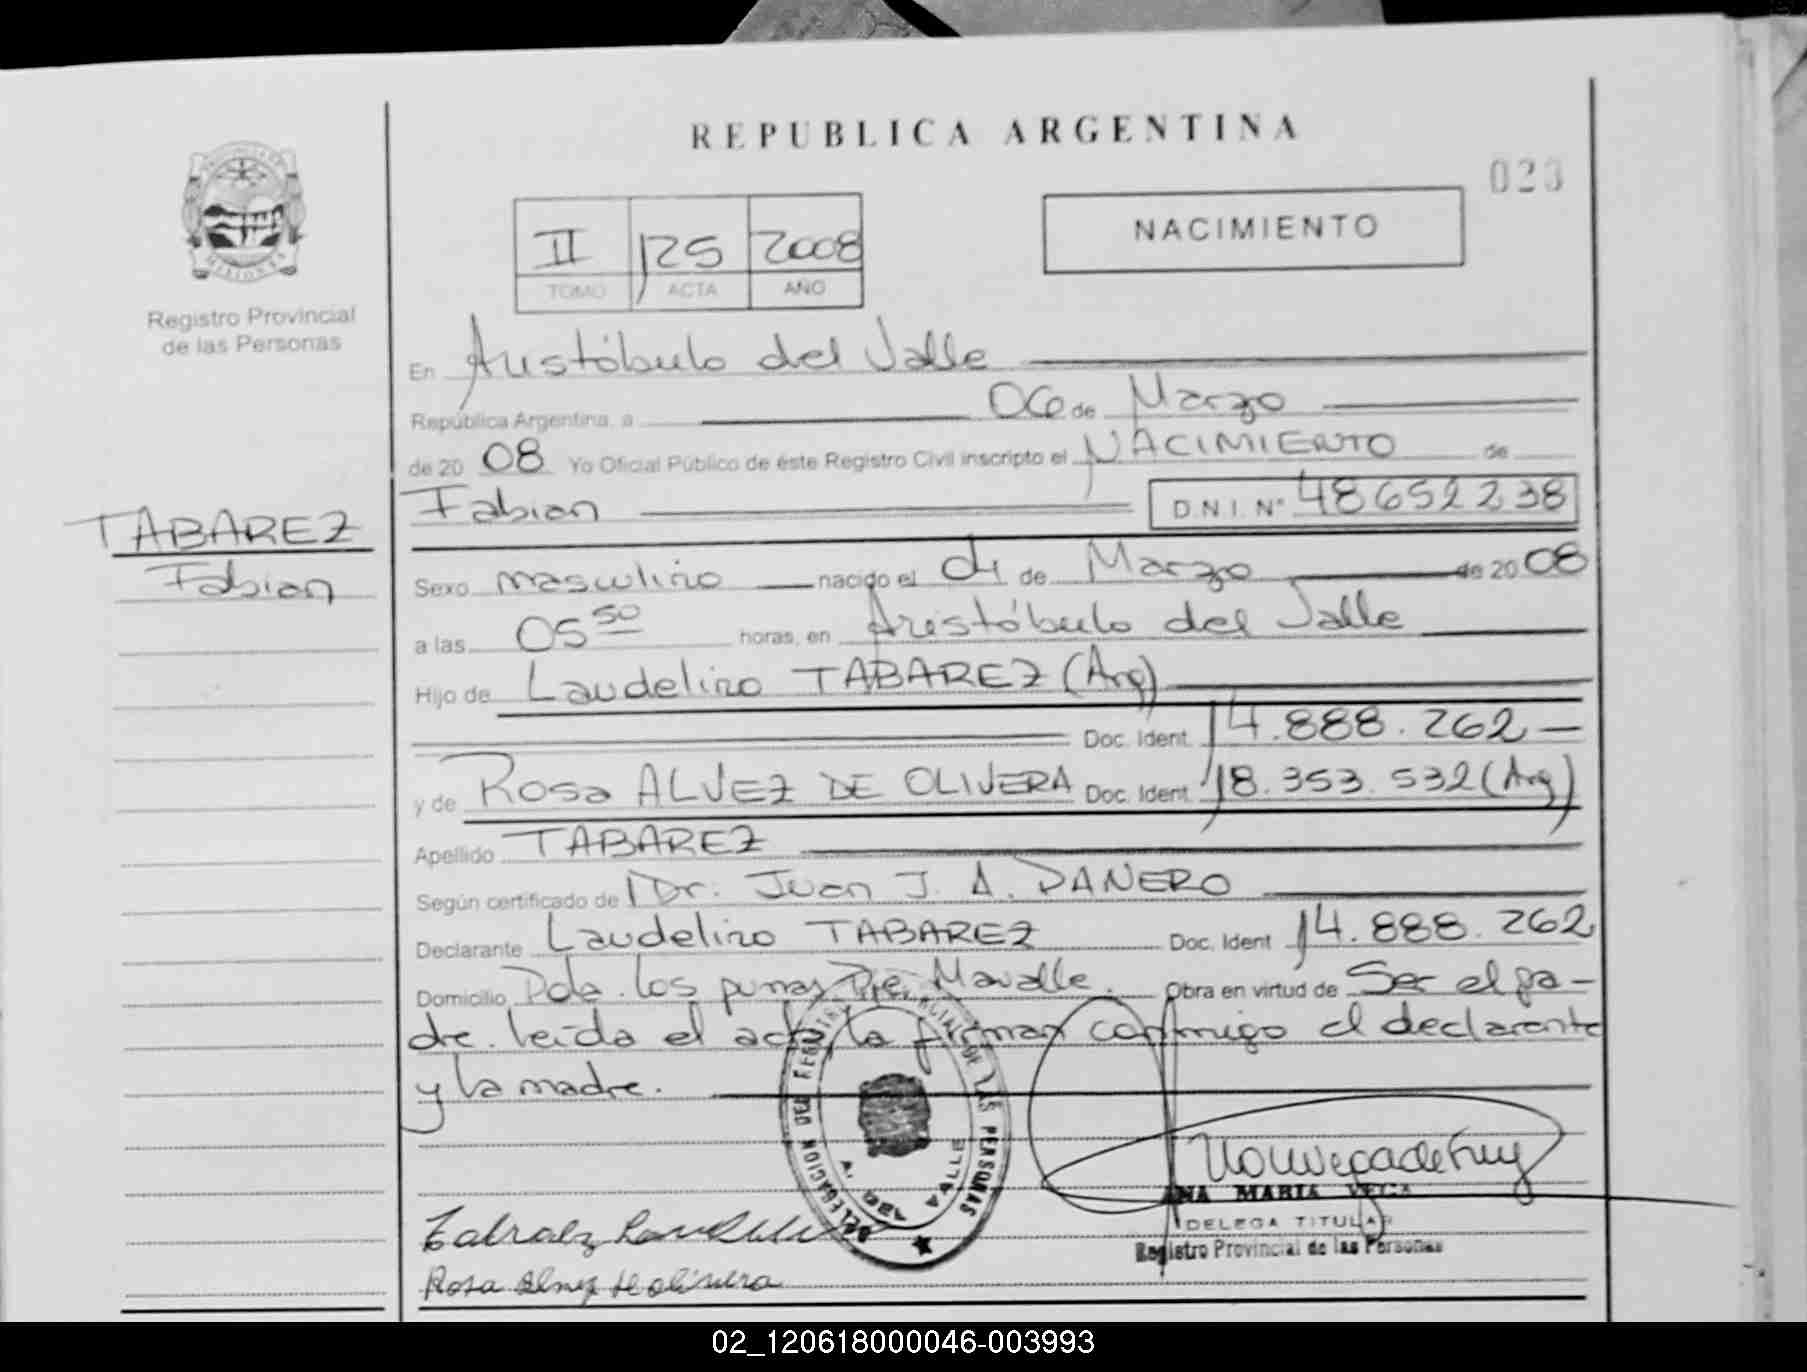 REPUBLICA ARGENTINA
023
PROVINCIA DE
MISIONES
Registro Provincial
de las Personas
II 125 2008
TOMO ACTA AÑO
NACIMIENTO
En Aristóbulo del Valle
República Argentina, a 06 de Marzo
de 20 08 Yo Oficial Público de éste Registro Civil inscripto el NACIMIENTO de
Fabian D.N.I. Nº 48652238
TABAREZ
Fabian
Sexo masculino nacido el 04 de Marzo de 2008
a las 05 50 horas, en Aristóbulo del Valle
Hijo de Laudelino TABAREZ (Arg)
Doc. Ident. 14.888.262
y de Rosa ALVEZ DE OLIVERA Doc. Ident. 18.353.532 (Arg)
Apellido TABAREZ
Según certificado de Dr: Juan J. A. DANERO
Declarante Laudelino TABAREZ Doc. Ident 14.888.262
Domicilio Pda. los pumas Obra en virtud de Ser el pa-
dre. leída el acta la firman conmigo el declarante
y la madre.
DELEGACION DEL REGISTRO PROVINCIAL DE LAS PERSONAS
A. DEL VALLE
ANA MARIA VEGA
DELEGA TITULAR
Registro Provincial de las Personas
02_120618000046-003993